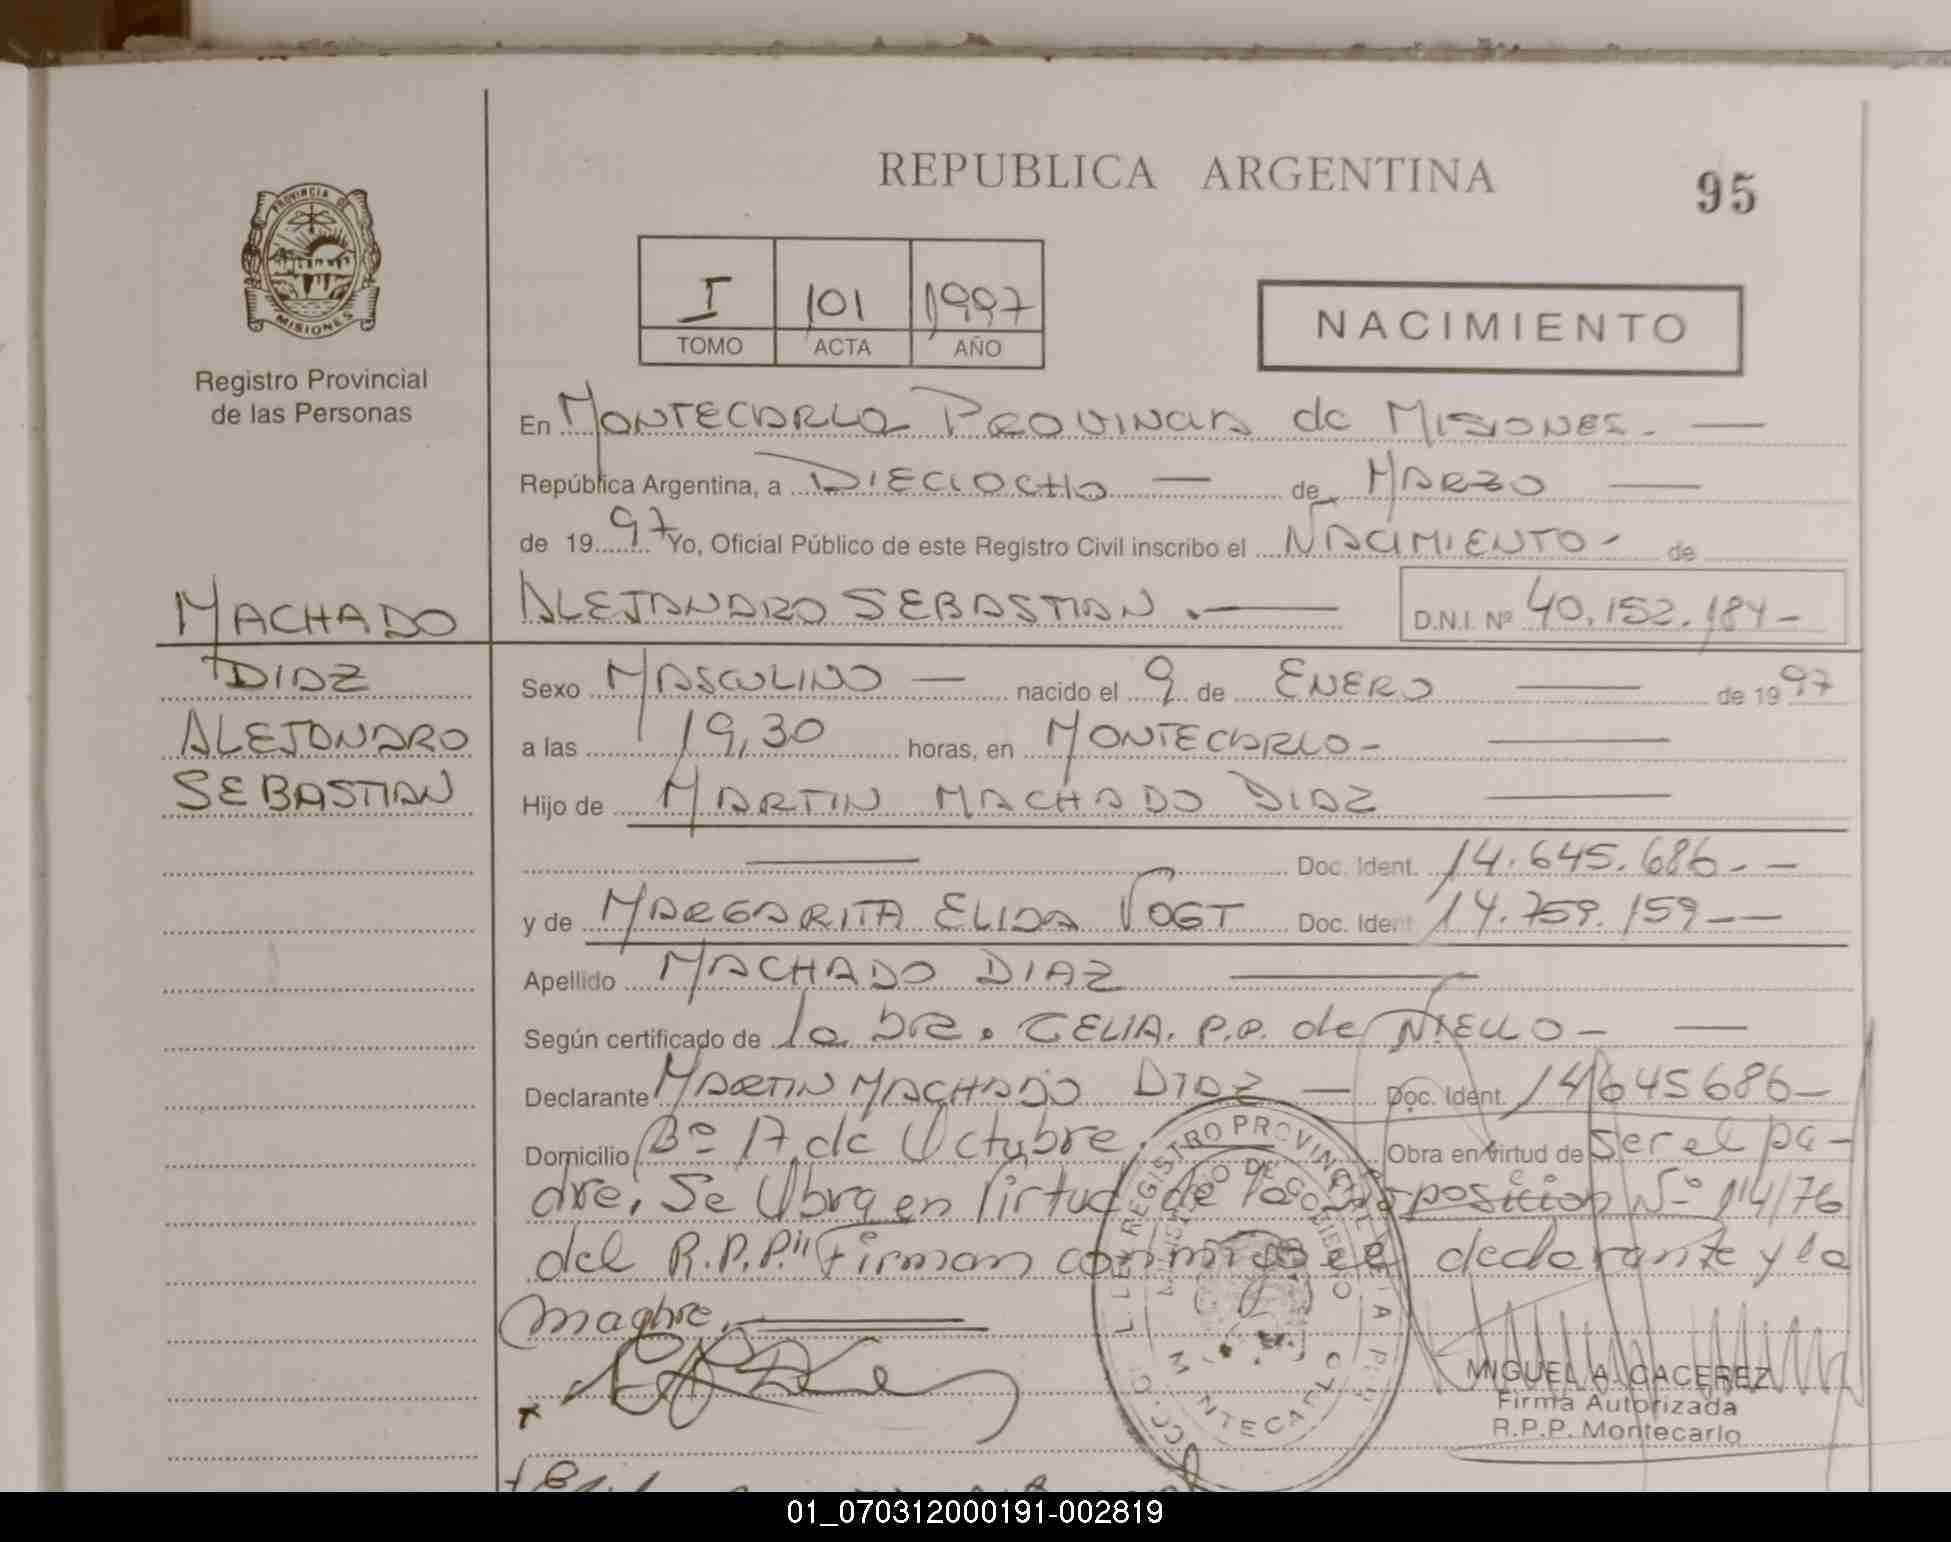 REPUBLICA ARGENTINA
95
PROVINCIA DE
MISIONES
Registro Provincial
de las Personas
I 101 1997
TOMO ACTA AÑO
NACIMIENTO
En MONTECARLO PROVINCIA de MISIONES. —
República Argentina, a DIECIOCHO — de MARZO —
de 1997 Yo, Oficial Público de este Registro Civil inscribo el NACIMIENTO - de
MACHADO
DIAZ
ALEJANDRO
SEBASTIAN
ALEJANDRO SEBASTIAN . — D.N.I. Nº 40.152.184 -
Sexo MASCULINO — nacido el 9 de ENERO — de 1997
a las 19,30 horas, en MONTECARLO - —
Hijo de MARTIN MACHADO DIAZ —
— Doc. Ident. 14.645.686. - -
y de MARGARITA ELIDA VOGT Doc. Ident 14.759.159 - —
Apellido MACHADO DIAZ —
Según certificado de la DRA. CELIA. P.P. de NIELLO - —
Declarante MARTIN MACHADO DIAZ — Doc. Ident. 14645686 -
Domicilio Bº 17 de Octubre. Obra en virtud de ser el pa-
dre. Se Obra en Virtud de la Disposicion Nº 114/76
del R.P.P." Firman conmigo el declarante y la
madre.
REGISTRO PROVINCIAL DE
MINISTERIO DE GOBIERNO
MONTECARLO
MIGUEL A. CACEREZ
Firma Autorizada
R.P.P. Montecarlo
01_070312000191-002819